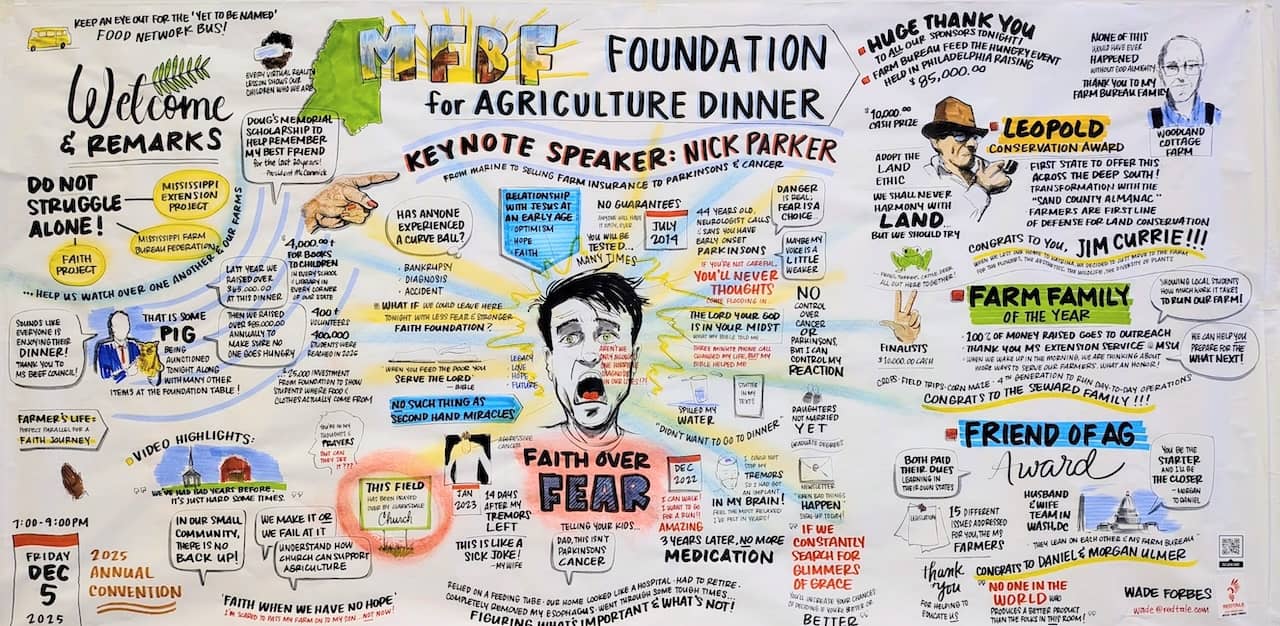 KEEP AN EYE OUT FOR THE 'YET TO BE NAMED'
FOOD NETWORK BUS!
Welcome
& REMARKS
EVERY VIRTUAL REALITY
LESSON SHOWS OUR
CHILDREN WHO WE ARE
DOUG'S MEMORIAL
SCHOLARSHIP TO
HELP REMEMBER
MY BEST FRIEND
for the last 20 years!
- President McCormick
DO NOT
STRUGGLE
ALONE!
MISSISSIPPI
EXTENSION
PROJECT
MISSISSIPPI FARM
BUREAU FEDERATION
FAITH
PROJECT
...HELP US WATCH OVER ONE ANOTHER & OUR FARMS
SOUNDS LIKE
EVERYONE IS
ENJOYING THEIR
DINNER!
THANK YOU TO
MS BEEF COUNCIL!
THAT IS SOME
PIG
BEING
AUNCTIONED
TONIGHT ALONG
WITH MANY OTHER
ITEMS AT THE FOUNDATION TABLE!
LAST YEAR WE
RAISED OVER
AT THIS DINNER
THEN WE RAISED
OVER
ANNUALLY TO
MAKE SURE NO
ONE GOES HUNGRY
$4,000.00+
FOR BOOKS
TO CHILDREN
IN EVERY SCHOOL
LIBRARY IN
EVERY CORNER
OF OUR STATE
400+
VOLUNTEERS
STUDENTS WERE
REACHED IN
25,000 INVESTMENT
FROM FOUNDATION TO SHOW
STUDENTS WHERE FOOD &
CLOTHES ACTUALLY COME FROM
FARMER'S LIFE:
PERFECT PARALLEL FOR A
FAITH JOURNEY
VIDEO HIGHLIGHTS:
"WE'VE HAD BAD YEARS BEFORE.
IT'S JUST HARD SOME TIMES."
7:00-9:00PM
FRIDAY
DEC
5
2025
2025
ANNUAL
CONVENTION
IN OUR SMALL
COMMUNITY,
THERE IS NO
BACK UP!
WE MAKE IT OR
WE FAIL AT IT
UNDERSTAND HOW
CHURCH CAN SUPPORT
AGRICULTURE
'FAITH WHEN WE HAVE NO HOPE'
I'M SCARED TO PASS MY FARM ON TO MY SON... NOT NOW!
MFBF FOUNDATION
for AGRICULTURE DINNER
KEYNOTE SPEAKER: NICK PARKER
FROM MARINE TO SELLING FARM INSURANCE TO PARKINSONS & CANCER
HAS ANYONE
EXPERIENCED
A CURVE BALL?
• BANKRUPSY
• DIAGNOSIS
• ACCIDENT
WHAT IF WE COULD LEAVE HERE
TONIGHT WITH LESS FEAR & STRONGER
FAITH FOUNDATION?
"WHEN YOU FEED THE POOR YOU
SERVE THE LORD"
- BIBLE
NO SUCH THING AS
SECOND HAND MIRACLES
YOU'RE IN MY
THOUGHTS &
PRAYERS
BUT CAN
THEY SEE
IT???
THIS FIELD
HAS BEEN PRAYED
OVER BY CLARKSDALE
Church
AGGRESSIVE
CANCER
JAN
2023
14 DAYS
AFTER MY
TREMORS
LEFT
THIS IS LIKE A
SICK JOKE!
- MY WIFE
RELATIONSHIP
WITH JESUS AT
AN EARLY AGE
• OPTIMISM
• HOPE
• FAITH
NO GUARANTEES
YOU WILL BE
TESTED...
MANY TIMES
JULY
2014
44 YEARS OLD,
NEUROLOGIST CALLS
& SAYS YOU HAVE
EARLY ONSET
PARKINSONS
DANGER
IS REAL;
FEAR IS A
CHOICE.
MAYBE MY
VOICE IS A
LITTLE
WEAKER
IF YOU'RE NOT CAREFUL,
YOU'LL NEVER
THOUGHTS
COME FLOODING IN...
THE LORD YOUR GOD
IS IN YOUR MIDST
WHAT MY BIBLE TOLD ME
THREE MINUTE PHONE CALL
CHANGED MY LIFE, BUT MY
BIBLE HELPED ME
NO
CONTROL
OVER
CANCER
OR
PARKINSONS,
BUT I CAN
CONTROL MY
REACTION
LEGACY
• LOVE
• HOPE
• FUTURE
AREN'T WE
ONLY
ONE HORRIBLE
DIAGNOSIS
IN OUR LIVES!?!
SPILLED MY
WATER
IN MY
TEXTS
"DIDN'T WANT TO GO TO DINNER"
DAUGHTERS
NOT MARRIED
YET
GRADUATE DEGREES
FAITH OVER
FEAR
TELLING YOUR KIDS...
DAD, THIS ISN'T
PARKINSONS
CANCER
DEC
2022
I CAN WALK!
I WANT TO GO
FOR A RUN!!
AMAZING
I COULD NOT
STOP MY
TREMORS
SO I HAD GOT
AN IMPLANT
IN MY BRAIN!
FEEL THE MOST RELAXED
I'VE FELT IN YEARS!
3 YEARS LATER, NO MORE
MEDICATION
NEWSLETTER
WHEN BAD THINGS
HAPPEN
SHOW UP TODAY!
IF WE
CONSTANTLY
SEARCH FOR
GLIMMERS
OF GRACE
YOU'LL INCREASE YOUR CHANCES
OF DECIDING IF YOU'RE BITTER OR
BETTER
RELIED ON A FEEDING TUBE. OUR HOME LOOKED LIKE A HOSPITAL. HAD TO RETIRE.
COMPLETELY REMOVED MY ESOPHAGUS. WENT THROUGH SOME TOUGH TIMES...
FIGURING WHAT'S IMPORTANT & WHAT'S NOT!
HUGE THANK YOU
TO ALL OUR SPONSORS TONIGHT!
FARM BUREAU FEED THE HUNGRY EVENT
HELD IN PHILADELPHIA RAISING
$85,000.00
NONE OF THIS
WOULD HAVE EVER
HAPPENED
WITHOUT GOD ALMIGHTY
THANK YOU TO MY
FARM BUREAU FAMILY
WOODLAND
COTTAGE
FARM
$10,000.00
CASH PRIZE
LEOPOLD
CONSERVATION AWARD
ADOPT THE
LAND
ETHIC
WE SHALL NEVER
HARMONY WITH
LAND...
BUT WE SHOULD TRY
FIRST STATE TO OFFER THIS
ACROSS THE DEEP SOUTH!
TRANSFORMATION WITH THE
"SAND COUNTY ALMANAC"
FARMERS ARE FIRST LINE
OF DEFENSE FOR LAND CONSERVATION
CONGRATS TO YOU, JIM CURRIE!!!
WHEN WE LOST OUR HOME TO KATRINA, WE DECIDED TO JUST MOVE TO THE FARM
FOR THE FLOWERS, THE AESTHETICS, THE WILDLIFE, THE DIVERSITY OF PLANTS
ALL OUT HERE TOGETHER!
FINALISTS
$10,000.00 CASH
FARM FAMILY
OF THE YEAR
SHOWING LOCAL STUDENTS
HOW MUCH WORK IT TAKES
TO RUN OUR FARM!
WE CAN HELP YOU
PREPARE FOR THE
WHAT NEXT!
• 100% OF MONEY RAISED GOES TO OUTREACH
• THANK YOU MS EXTENSION SERVICE @ MSU
• WHEN WE WAKE UP IN THE MORNING, WE ARE THINKING ABOUT
MORE WAYS TO SERVE OUR FARMERS. WHAT AN HONOR!
CROPS • FIELD TRIPS • CORN MAZE • 4TH GENERATION TO RUN DAY-TO-DAY OPERATIONS
CONGRATS TO THE SEWARD FAMILY!!!
FRIEND OF AG
Award
BOTH PAID
THEIR DUES
LEARNING IN
THEIR OWN STATES
LEGISLATION
15 DIFFERENT
ISSUES ADDRESSED
FOR YOU, THE MS
FARMERS
HUSBAND
& WIFE
TEAM IN
WASH, DC
YOU BE THE
STARTER
AND I'LL BE
THE CLOSER
- MORGAN
TO DANIEL
THEY LEAN ON EACH OTHER & MS FARM BUREAU
CONGRATS TO DANIEL & MORGAN ULMER
thank
you
FOR HELPING TO
EDUCATE US
"NO ONE IN THE
WORLD WHO
PRODUCES A BETTER PRODUCT
THAN THE FOLKS IN THIS ROOM!"
WADE FORBES
wade@redtale.com
REDTALE